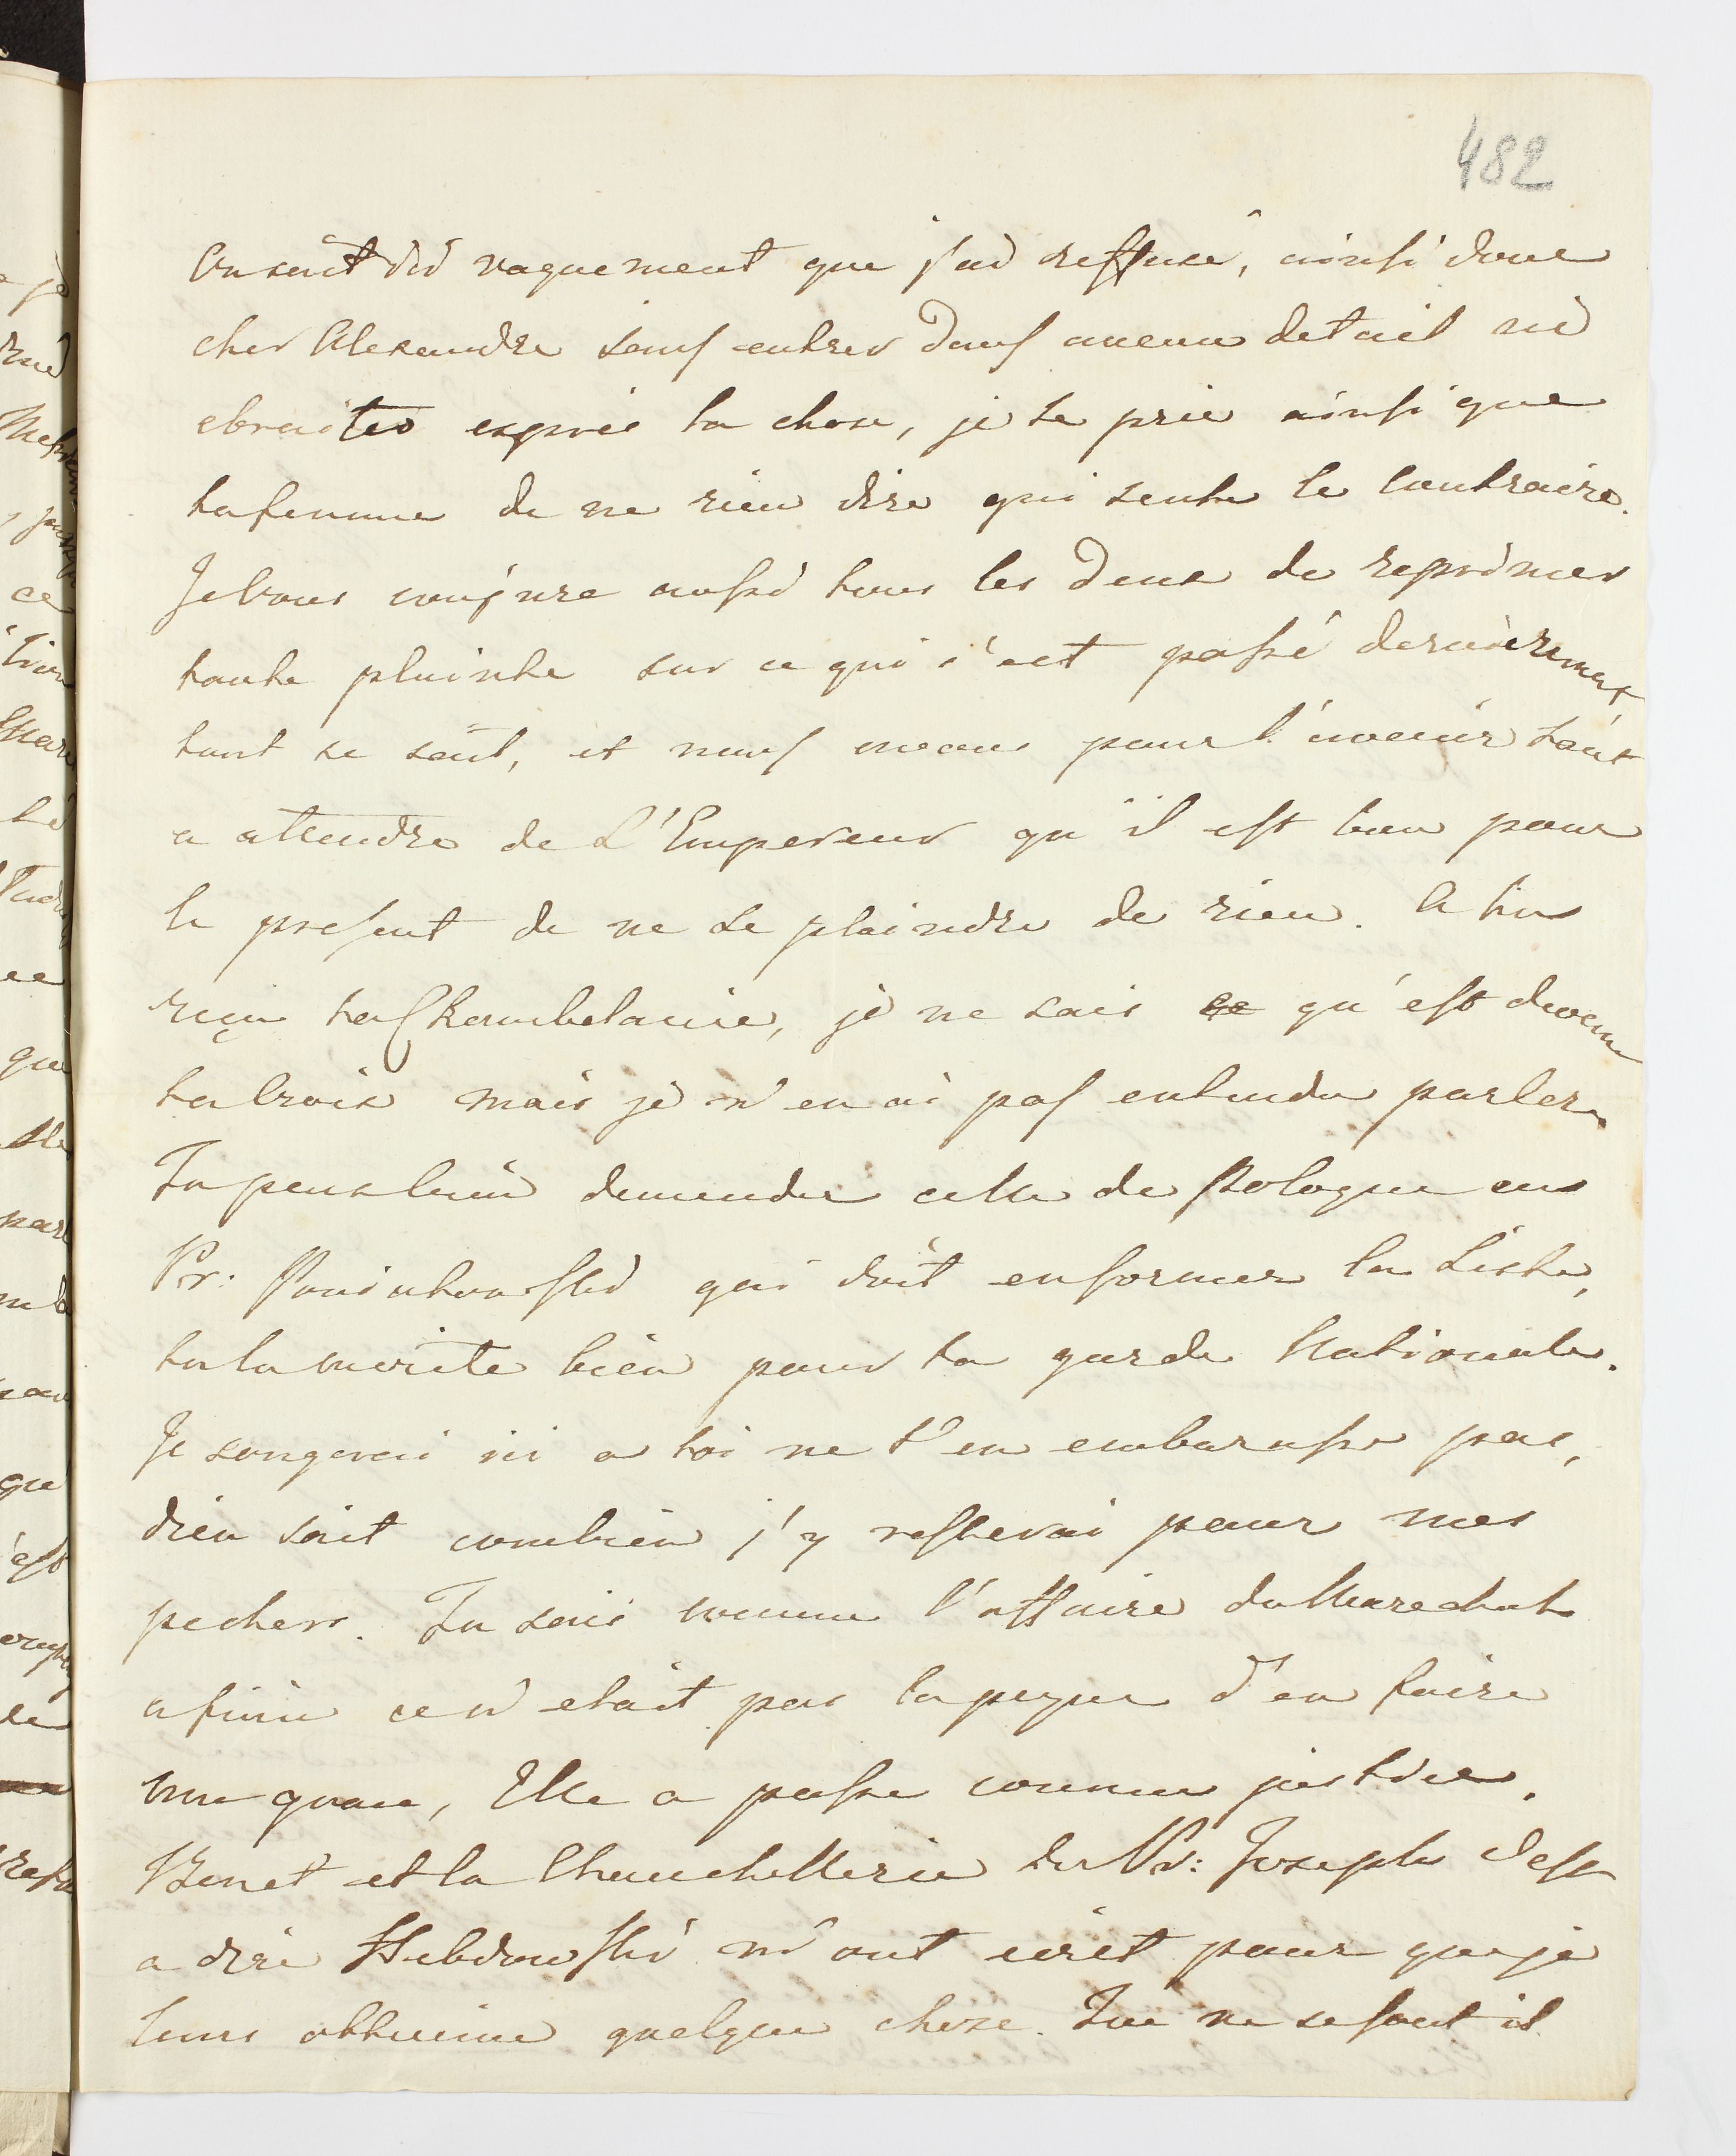 482
On sait dèd vaguement que j'ai reffusé, ainsi donc
cher Alexandre sans entrer dans aucun detail ni
ebruiter exprès la chose, je te prie ainsi que
ta femme de ne rien dire qui sente le contraire.
Je Vous conjure aussi tous les deux de reprimer
toute plainte sur ce qui s'est passé dernièrement
tout se sait, et nous avons pour l'avenir tout
a attendre de L'Empereur qu'il est bon pour
le present de ne se plaindre de rien. As tu
reçu ta Chambelanie, je ne sais ce qu'est devenu
ta Croix mais je n'en ai pas entendu parler.
Tu peux bien demander celle de Pologne au
Pr: Poniatowski qui doit en former la Liste,
tu la merite bien pour ta garde Nationale.
Je songerai ici a toi ne t'en embarasse pas,
dieu sait combien j'y resterai pour mes
pechers. Tu sais comme l'affaire du Marechal
a fini ce n'etait pas la peyne d'en faire
une, Elle a passe comme justice.
Benet et la Chanchellerie du Pr: Joseph c'est
a dire Hebdowski m'ont ecrit pour que je
leurs obtienne quelque chose. Que ne se font il